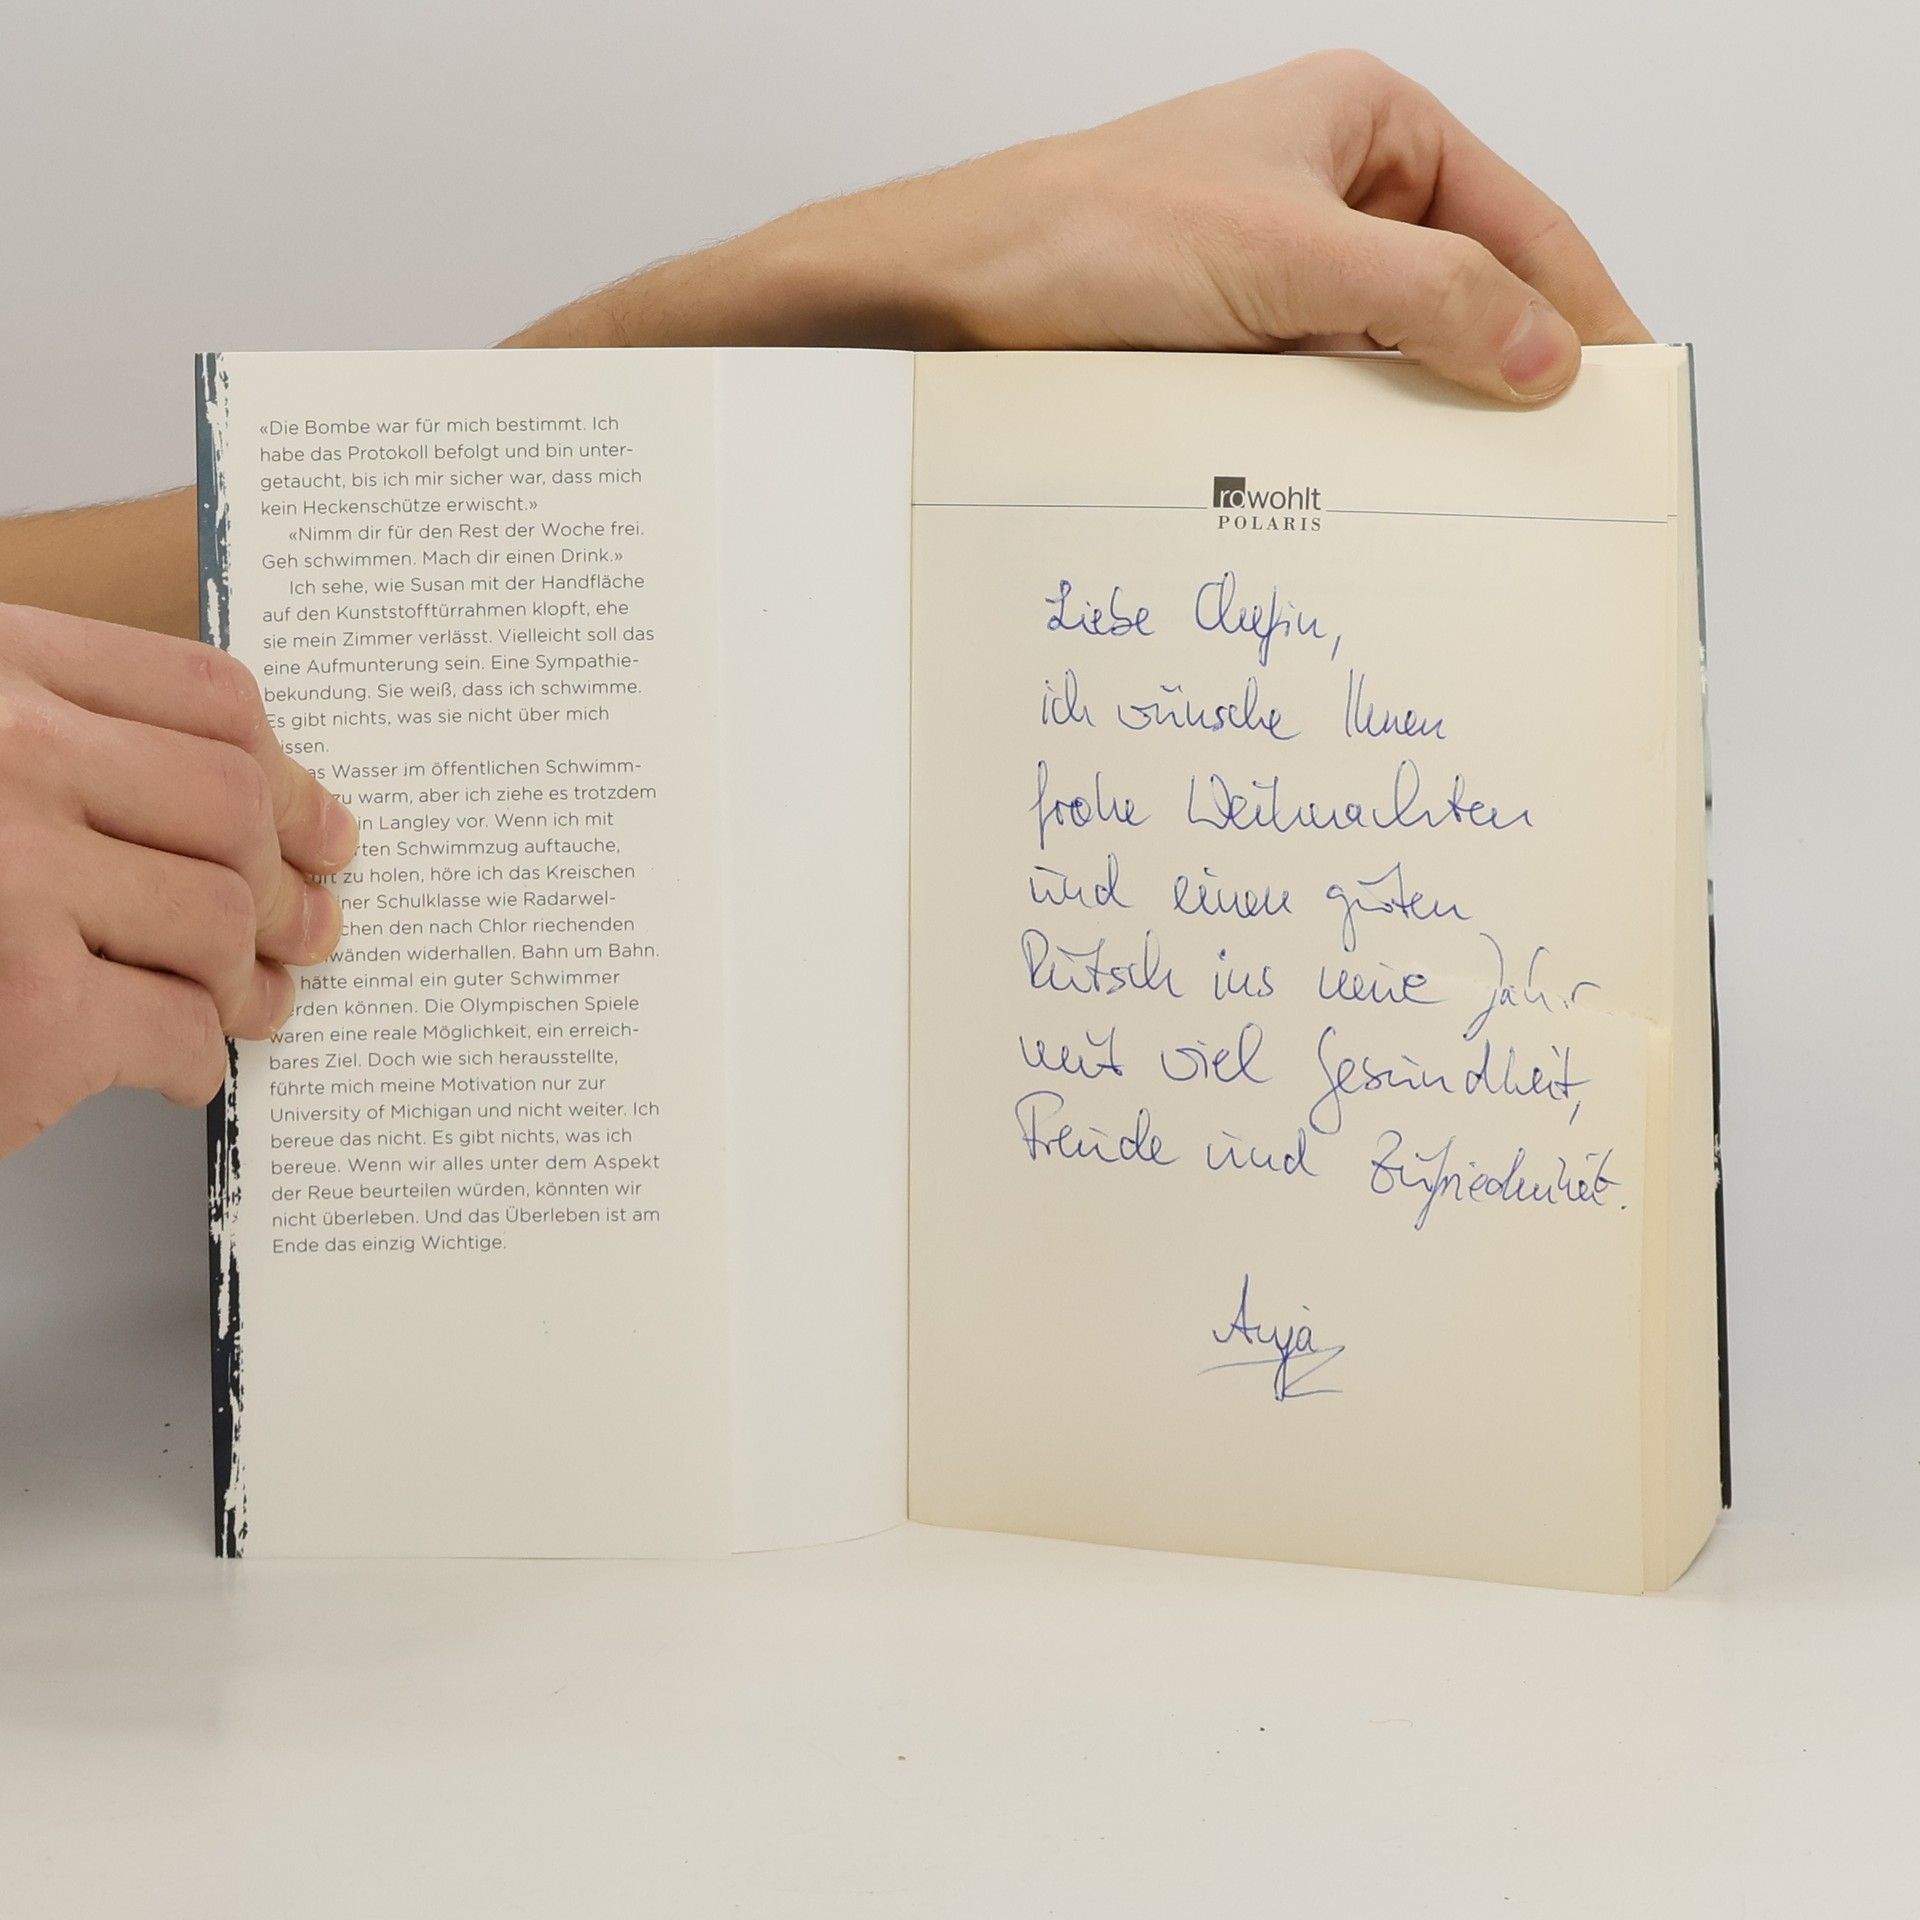 «Die Bombe war für mich bestimmt. Ich
habe das Protokoll befolgt und bin unter-
getaucht, bis ich mir sicher war, dass mich
kein Heckenschütze erwischt.»
«Nimm dir für den Rest der Woche frei.
Geh schwimmen. Mach dir einen Drink.»
Ich sehe, wie Susan mit der Handfläche
auf den Kunststofftürrahmen klopft, ehe
sie mein Zimmer verlässt. Vielleicht soll das
eine Aufmunterung sein. Eine Sympathie-
bekundung. Sie weiß, dass ich schwimme.
Es gibt nichts, was sie nicht über mich
issen.
as Wasser im öffentlichen Schwimm-
zu warm, aber ich ziehe es trotzdem
in Langley vor. Wenn ich mit
rten Schwimmzug auftauche,
uft zu holen, höre ich das Kreischen
iner Schulklasse wie Radarwel-
chen den nach Chlor riechenden
wänden widerhallen. Bahn um Bahn.
hätte einmal ein guter Schwimmer
erden können. Die Olympischen Spiele
waren eine reale Möglichkeit, ein erreich-
bares Ziel. Doch wie sich herausstellte,
führte mich meine Motivation nur zur
University of Michigan und nicht weiter. Ich
bereue das nicht. Es gibt nichts, was ich
bereue. Wenn wir alles unter dem Aspekt
der Reue beurteilen würden, könnten wir
nicht überleben. Und das Überleben ist am
Ende das einzig Wichtige.
rowohlt
POLARIS
Liebe Chefin,
ich wünsche Ihnen
frohe Weihnachten
und einen guten
Rutsch ins neue Jahr
mit viel Gesundheit,
Freude und Zufriedenheit.
Anja